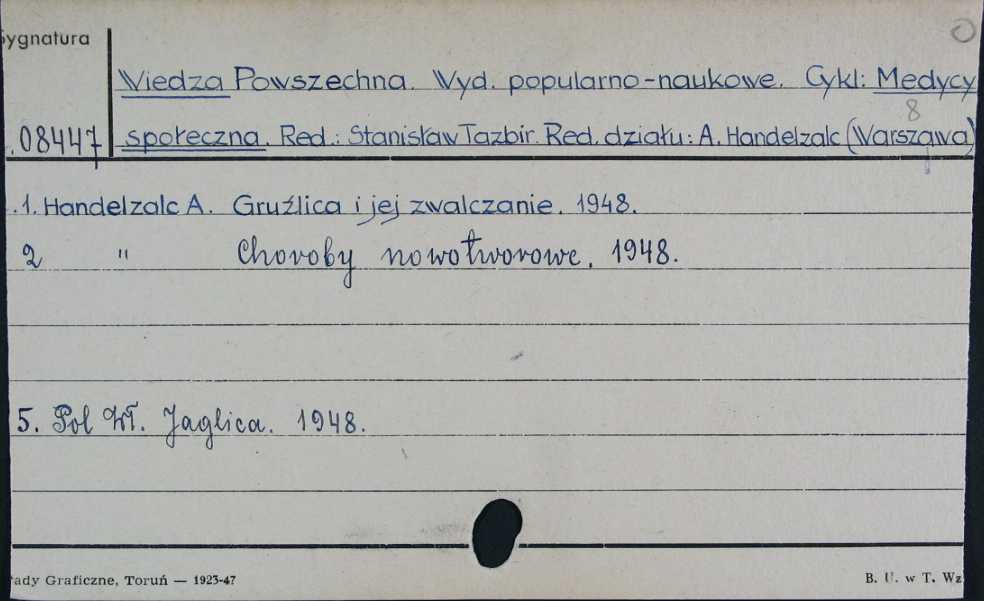 Sygnatura
Wiedza Powszechna. Wyd. popularno-naukowe. Cykl: Medycy
8
.08447 społeczna. Red.: Stanisław Tazbir. Red. działu: A. Handelzalc (Warszawa)
.1. Handelzalc A. Gruźlica i jej zwalczanie. 1948.
2 " Choroby nowotworowe. 1948.
5. Pol Wł. Jaglica. 1948.
ady Graficzne, Toruń — 1923-47 B. U. w T. Wz